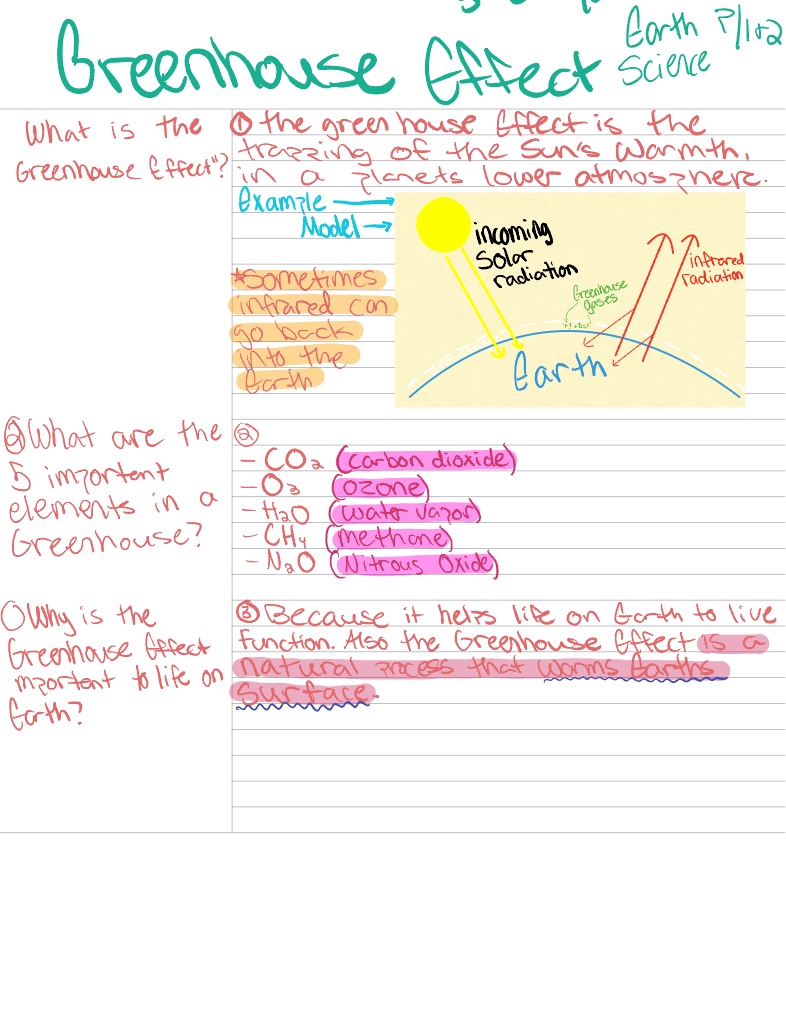 Greenhouse Effect
Earth P/1+2
Science
What is the
Greenhouse Effect"?
① the green house Effect is the
trapping of the Sun's Warmth,
in a planets lower atmosphere.
Example
Model
incoming
Solar
radiation
infrared
radiation
Greenhouse
gases
Earth
*Sometimes
infrared can
go back
into the
Earth
②What are the
5 important
elements in a
Greenhouse?
②
- CO₂ (carbon dioxide)
- O₃ (ozone)
- H₂O (water vapor)
- CH₄ (methane)
- N₂O (Nitrous Oxide)
Why is the
Greenhouse Effect
mportent to life on
Earth?
③ Because it helps life on Earth to live
function. Also the Greenhouse Effect is a
natural process that warms Earths
Surface.